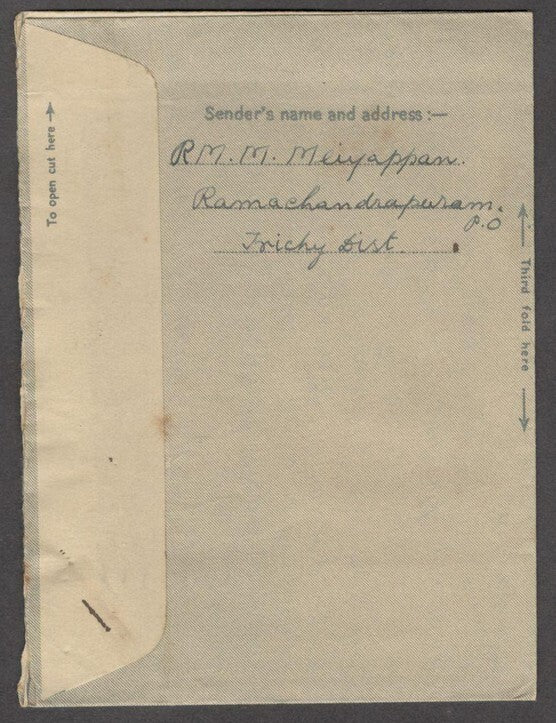 To open cut here →
Sender's name and address :—
RM. M. Meiyappan.
Ramachandrapuram.
P.O
Trichy Dist.
← Third fold here →